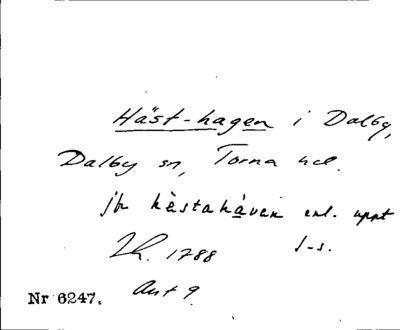 Häst-hagen i Dalby,
Dalby sn, Torna hd.
jfr hèstahávan enl. uppt
1788 s-s.
Nr 6247. Avt 9